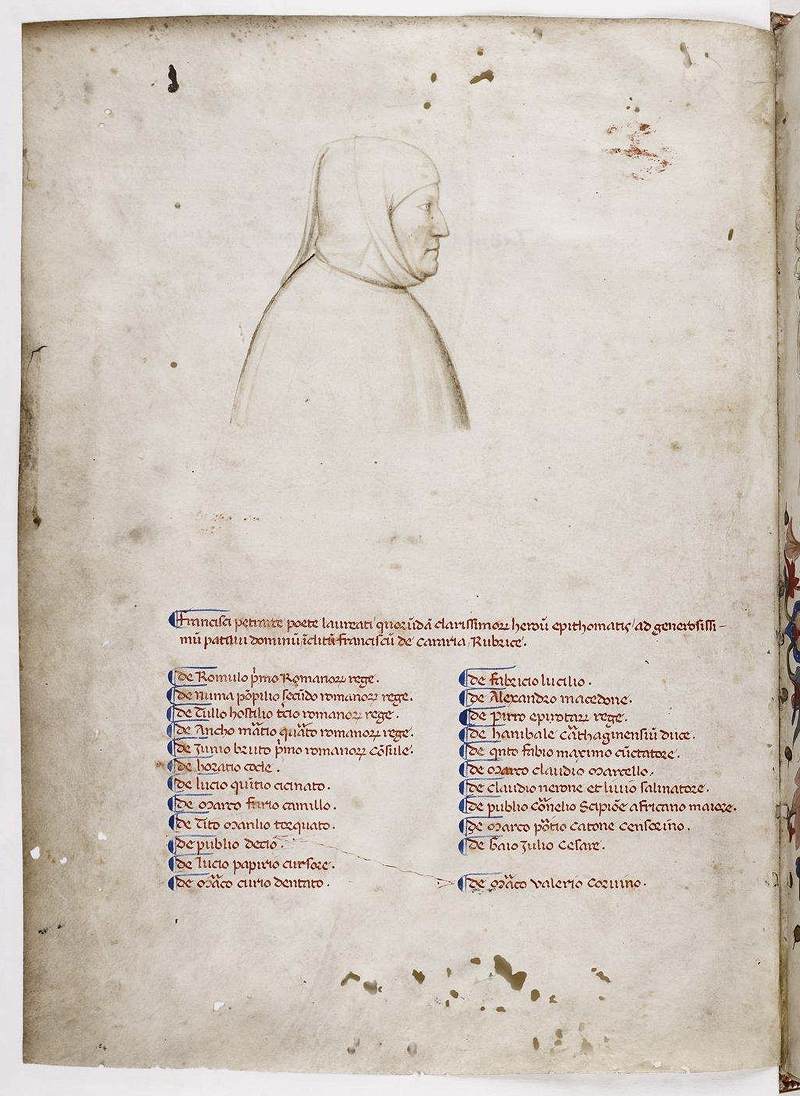 Francisci petrarce poete laureati quorūdā clarissimoꝝ heroū epithomatis ad generosissi-
mū patauī dominū īclitū franciscū de Cararia Rubrice.
de Romulo p̄mo Romanoꝝ rege.
de numa pōpilio secūdo romanoꝝ rege.
de Tullo hostilio t̄cio romanoꝝ rege.
de Ancho mātio quāto romanoꝝ rege.
de Junio bruto p̄mo romanoꝝ cōsule.
de horatio cocle.
de lucio quītio cicinato.
de Marco furio camillo.
de Tito Manlio torquato.
de publio decio.
de lucio papirio cursore.
de māco curio dentato.
de fabricio lucilio.
de Alexandro macedone.
de pirro epirotaꝝ rege.
de hanibale cāthaginensiū duce.
de qnto fabio maximo cūctatore.
de Marco claudio Marcello.
de claudio nerone et liuio salinatore.
de publio cōnelio Scipiōe africano maiore.
de Marco pōtio Catone Censorino.
de Gaio Julio Cesare.
de māco Valerio Coruino.